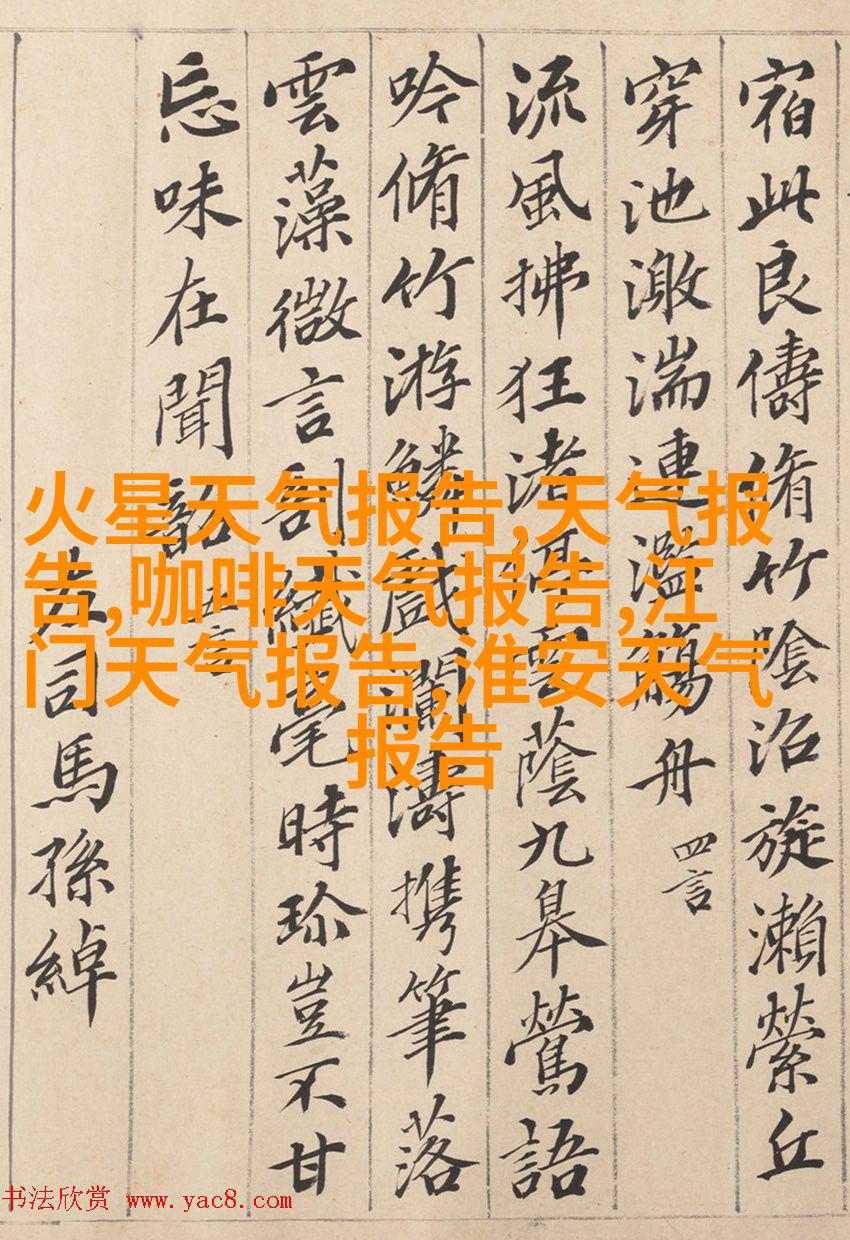 宿此良儔脩竹隂沿旋瀬縈丘
穿池激湍連濫觴舟 四言
流風拂狂渚停雲蔭九皋鶯語
吟脩竹游鱗戲瀾濤携筆落
雲藻微言剖纖毫時珎豈不甘
忘味在聞韶 五言
左司馬孫綽
火星天气报告,天气报
告,咖啡天气报告,江
门天气报告,淮安天气
报告
书法欣赏 www.yac8.com